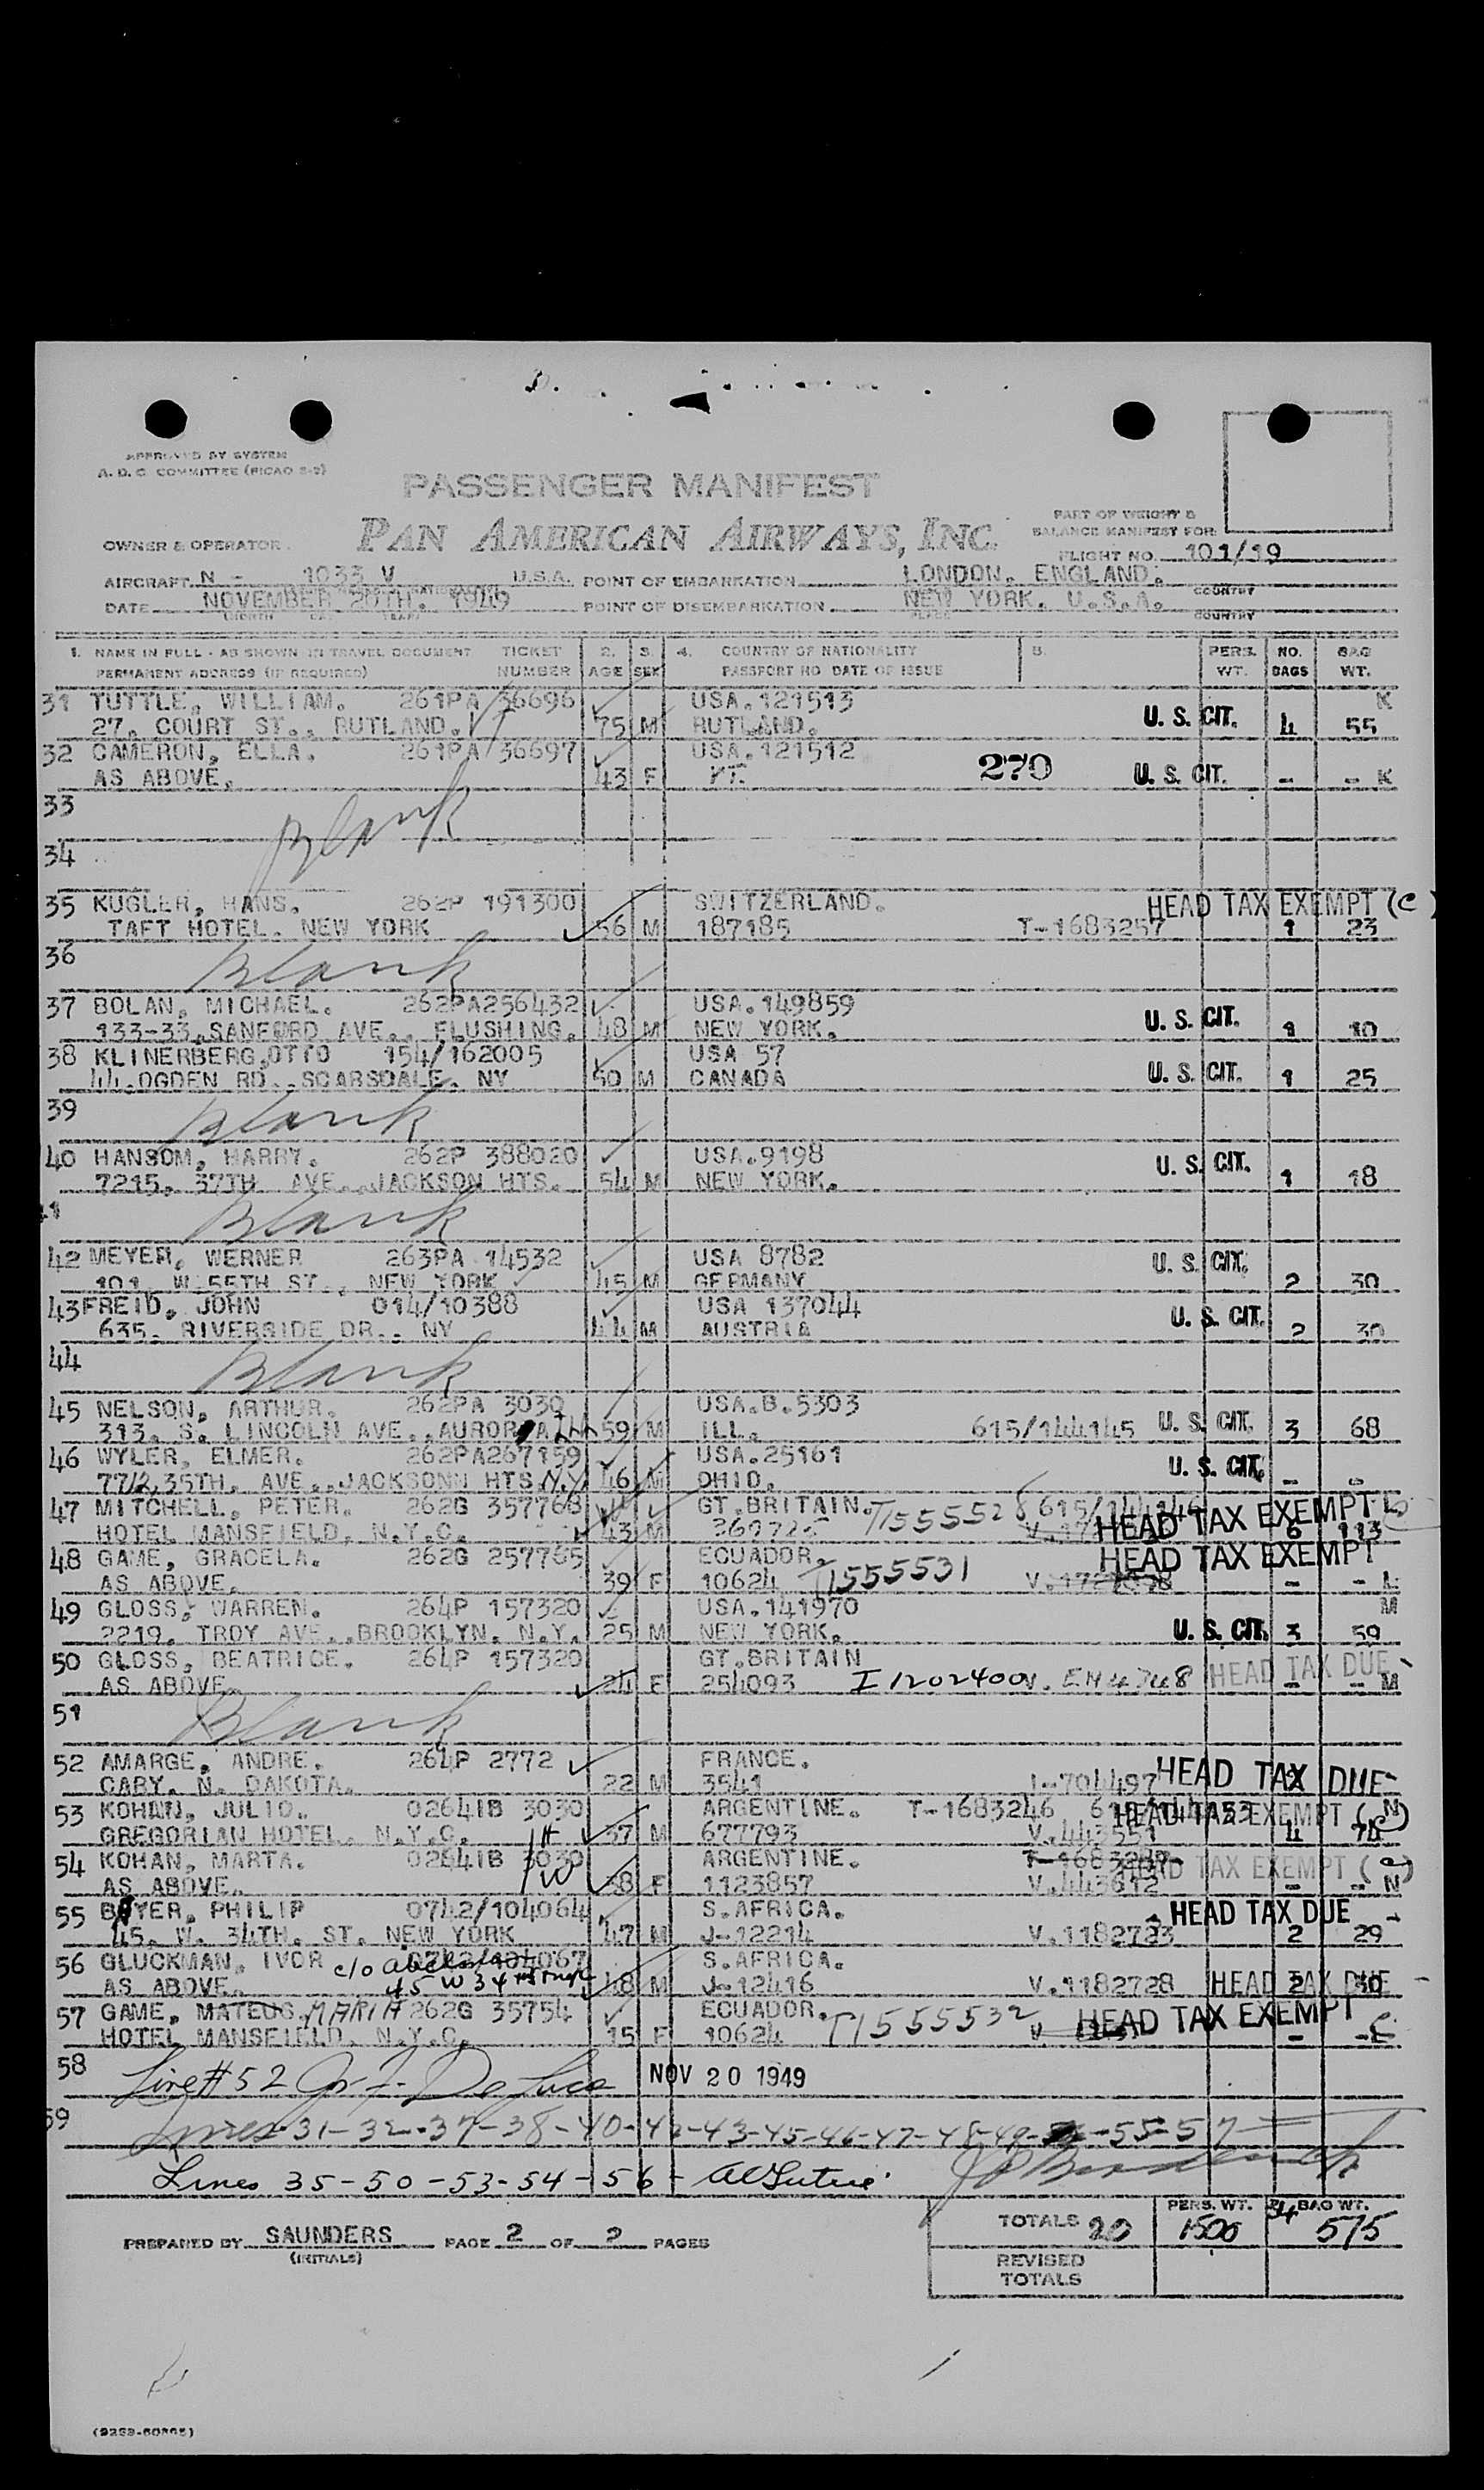 APPROVED BY SYSTEM
A. D. C. COMMITTEE (PICAO 2-2)
PASSENGER MANIFEST
PAN AMERICAN AIRWAYS, INC.
OWNER & OPERATOR
PART OF WEIGHT &
BALANCE MANIFEST FOR
FLIGHT NO. 101/19
AIRCRAFT N - 1033 V U.S.A. POINT OF EMBARKATION LONDON. ENGLAND. COUNTRY
DATE NOVEMBER 20TH. 1949 POINT OF DISEMBARKATION NEW YORK. U.S.A. COUNTRY
1. NAME IN FULL - AS SHOWN IN TRAVEL DOCUMENT TICKET 2. 3. 4. COUNTRY OF NATIONALITY 5. PERS. NO. BAG
PERMANENT ADDRESS (IF REQUIRED) NUMBER AGE SEX PASSPORT NO DATE OF ISSUE WT. BAGS WT.
31 TUTTLE, WILLIAM. 261PA 36696 USA.121513 K
27. COURT ST., RUTLAND. VT 75 M RUTLAND. U. S. CIT. 4 55
32 CAMERON, ELLA. 261PA 36697 USA.121512
AS ABOVE. 43 F VT. 270 U. S. CIT. - - K
33
Blank
34
35 KUGLER, HANS. 262P 191300 SWITZERLAND. HEAD TAX EXEMPT (C)
TAFT HOTEL. NEW YORK 56 M 187185 T-1683257 1 23
36 Blank
37 BOLAN, MICHAEL. 262PA256432 USA.149859
133-33.SANFORD AVE., FLUSHING. 48 M NEW YORK. U. S. CIT. 1 10
38 KLINERBERG,OTTO 154/162005 USA 57
44.OGDEN RD..SCARSDALE. NY 50 M CANADA U. S. CIT. 1 25
39 Blank
40 HANSOM, HARRY. 262P 388020 USA.9198
7215. 37TH AVE..JACKSON HTS. 54 M NEW YORK. U. S. CIT. 1 18
41 Blank
42 MEYER, WERNER 263PA 14532 USA 8782
101. W.55TH ST., NEW YORK 45 M GERMANY U. S. CIT. 2 30
43 FREID, JOHN 014/10388 USA 137044
635. RIVERSIDE DR.. NY 44 M AUSTRIA U. S. CIT. 2 30
44 Blank
45 NELSON, ARTHUR. 262PA 3030 USA.B.5303
313. S. LINCOLN AVE..AURORA Ill 59 M ILL. 615/144145 U. S. CIT. 3 68
46 WYLER, ELMER. 262PA267159 USA.25161
7712.35TH. AVE..JACKSONN HTS N.Y. 46 M OHIO. U. S. CIT. - -
47 MITCHELL, PETER. 262G 357768 GT.BRITAIN. T1555528
HOTEL MANSFIELD, N.Y.C. 43 M HEAD TAX EXEMPT 6 113
48 GAME, GRACELA. 262G 257765 ECUADOR. HEAD TAX EXEMPT
AS ABOVE. 39 F 10624 T1555531 - - L
49 GLOSS, WARREN. 264P 157320 USA.141970 M
2219. TROY AVE..BROOKLYN. N.Y. 25 M NEW YORK. U. S. CIT. 3 59
50 GLOSS, BEATRICE. 264P 157320 GT.BRITAIN
AS ABOVE 24 F 254093 I 1202400 V. EN 4748 HEAD TAX DUE - - M
51 Blank
52 AMARGE, ANDRE. 264P 2772 FRANCE.
CARY. N. DAKOTA. 22 M 3541 I-704497 HEAD TAX DUE
53 KOHAN, JULIO. 02641B 3030 ARGENTINE. T-1683246 HEAD TAX EXEMPT (C) N
GREGORIAN HOTEL. N.Y.C. H 37 M 677793 V.443551 4 74
54 KOHAN, MARTA. 02641B 3030 ARGENTINE. HEAD TAX EXEMPT (C)
AS ABOVE. W 38 F 1123857 V.443612 - - N
55 BEYER, PHILIP 0742/104064 S.AFRICA. HEAD TAX DUE
45. W. 34TH. ST. NEW YORK 47 M J-12214 V.1182723 2 29
56 GLUCKMAN, IVOR c/o S.AFRICA.
AS ABOVE. 45 W 34th 48 M J-12416 V.1182728 HEAD TAX DUE 2 30
57 GAME, MATEUS. MARIA 262G 35754 ECUADOR. HEAD TAX EXEMPT
HOTEL MANSFIELD, N.Y.C. 15 F 10624 T1555532 V. - -
58 Line # 52 NOV 20 1949
59 Lines 31-32-37-38-40-42-43-45-46-47-48-49- -55-57
Lines 35-50-53-54-56-
TOTALS 20 PERS. WT. 1500 34 BAG WT. 575
PREPARED BY SAUNDERS PAGE 2 OF 2 PAGES
(INITIALS)
REVISED
TOTALS